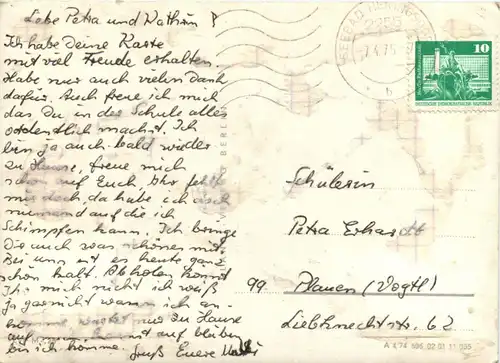 Lebe Petra und Kathrin!
Ich habe Deine Karte
mit viel Freude erhalten.
Habe nur auch vielen Dank
dafür. Auch freue ich mich
das Du in der Schule alles
ordentlich machst. Ich
bin ja auch bald wieder
zu Hause, freue mich
schon auf Euch. Ihr fehlt
mir doch, da habe ich doch
niemand auf die ich
Schimpfen kann. Ich bringe
Dir auch was schönes mit.
Bei uns ist es heute ganz
schön kalt. Abholen könnt
Ihr mich nicht ich weiß
ja garnicht wann ich an-
komme, wartet nur zu Hause
auf bleiben
bis ich komme. Gruß Euere
SEEBAD HERINGSDORF
2255
-7.4.75
b
10
DEUTSCHE DEMOKRATISCHE REPUBLIK
BERLIN
Schülerin
Petra Erhardt
99 Plauen (Vogtl)
Liebknechtstr. 62
A 1 74